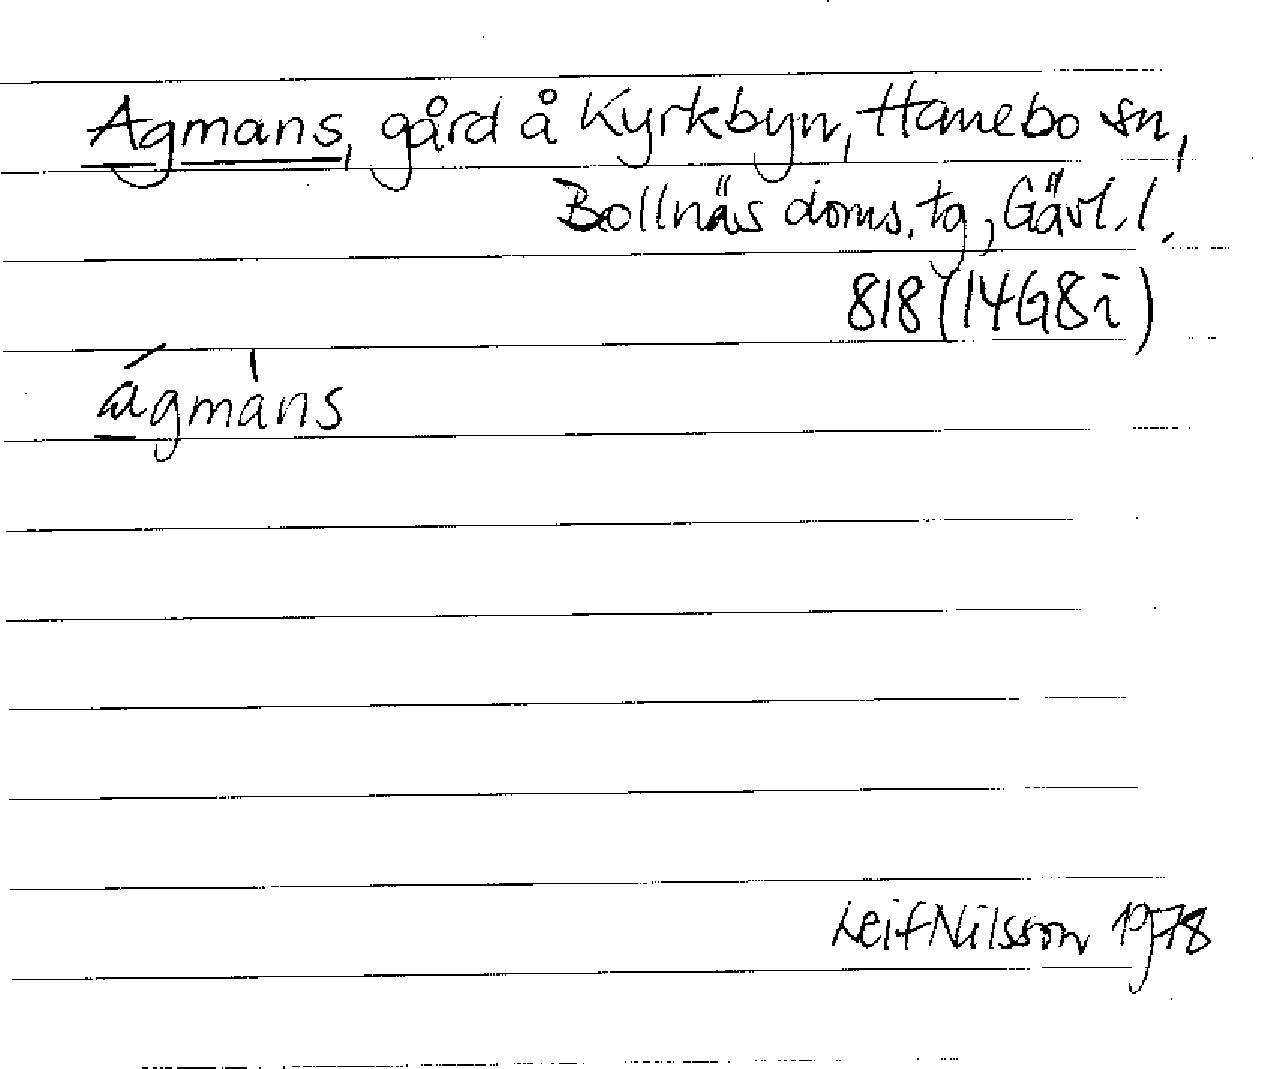 Agmans, gård å Kyrkbyn, Hanebo sn,
Bollnäs doms. tg, Gävl. l.
818 (14G8i)
ágmàns
Leif Nilsson 1978